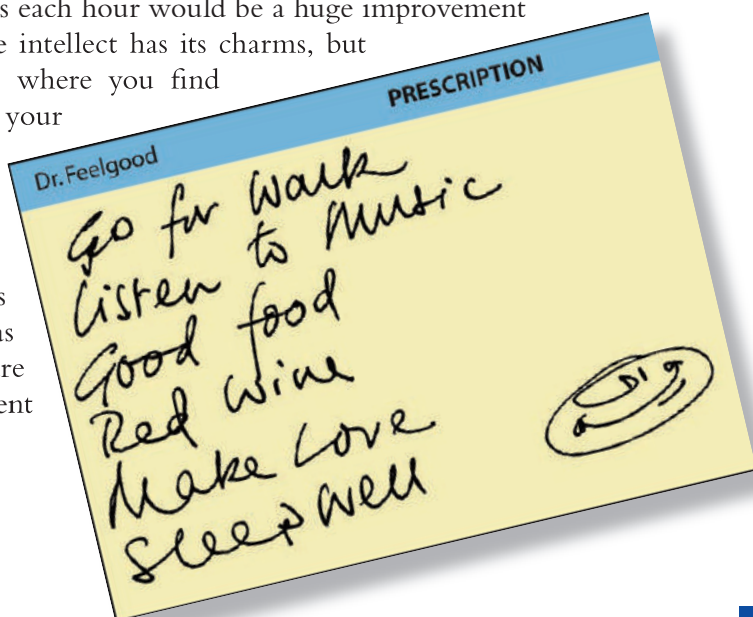 s each hour would be a huge improvement
e intellect has its charms, but
where you find
your
PRESCRIPTION
Dr. Feelgood
Go for Walk
Listen to Music
Good food
Red wine
Make Love
Sleep Well
s
as
re
ent